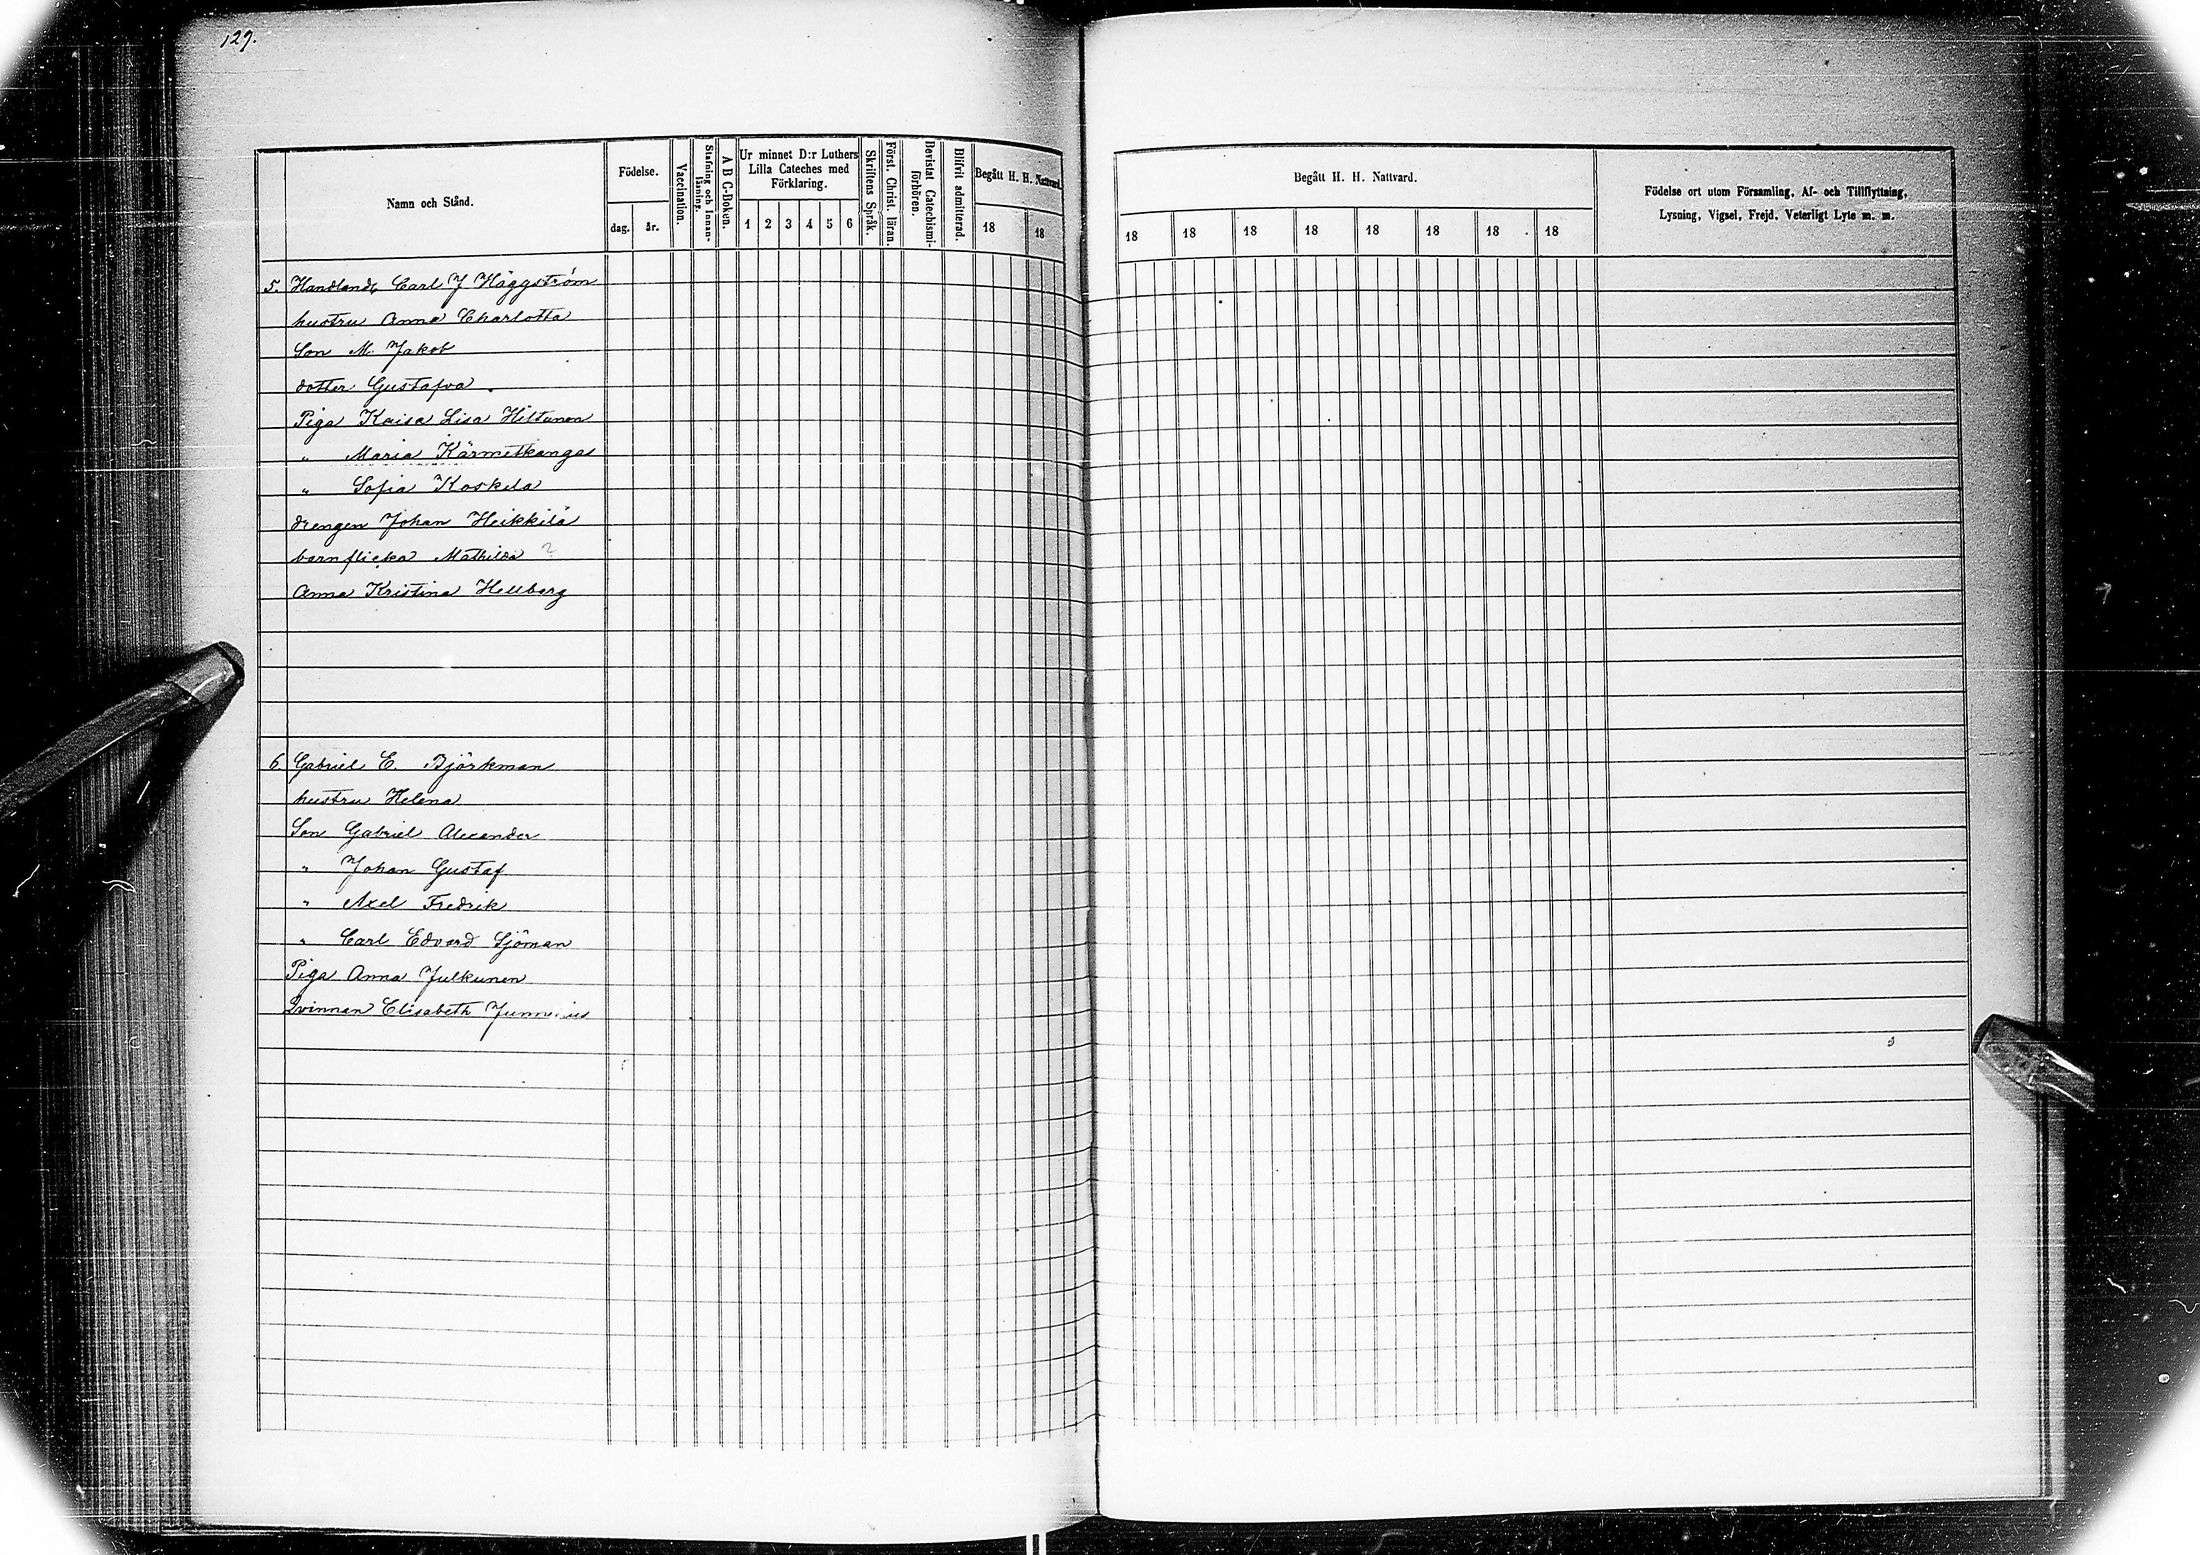 129.
Namn och Stånd.
Födelse.
dag.
år.
Vaccination.
Stafning och Innan-
läsning.
A B C-Boken.
Ur minnet D:r Luthers
Lilla Cateches med
Förklaring.
1 2 3 4 5 6
Skriftens Språk.
Först. Christ. läran.
Bevistat Catechismi-
förhören.
Blifvit admitterad.
Begått H. H. Nattvard.
18 18
Begått H. H. Nattvard.
18 18 18 18 18 18 18 18
Födelse ort utom Församling, Af- och Tillflyttning,
Lysning, Vigsel, Frejd, Veterligt Lyte m. m.
5. Handland. Carl J Häggström
hustru Anna Charlotta
Son M. Jakob
dotter Gustafva
Piga Kaisa Lisa Hiltunen
" Maria Kärmetkangas
" Sofia Koskela
drengen Johan Heikkilä
barnflicka Mathilda ?
Anna Kristina Hellberg
6 Gabriel E. Björkman
hustru Helena
Son Gabriel Alexander
" Johan Gustaf
" Axel Fredrik
" Carl Edvard Sjöman
Piga Anna Julkunen
Qvinnan Elisabeth